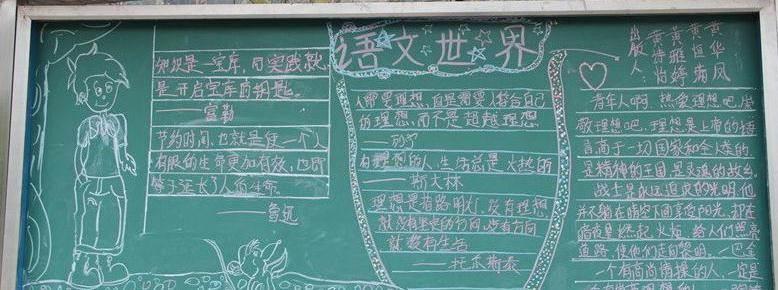 语文世界
知识是一宝库，而实践就
是开启宝库的钥匙。
——富勒
节约时间，也就是使一个人
有限的生命更加有效，也即
等于延长了人的生命
——鲁迅
人需要理想，但是需要人符合自己
的理想，而不是超越理想
——列宁
有理想的人，生活总是火热的
——斯大林
理想是指路明灯，没有理想
就没有坚定的方向，没有方向
就没有生活
——托尔斯泰
出版人
黄
黄
黄恒
黄华风
青年人啊，热爱理想吧，崇
敬理想吧，理想是上帝的语
言高于一切国家和全人类的
是精神的王国是灵魂的故乡。
战士是永远追求的光明，他
并不躺在晴空下面享受阳光，却在
暗夜里燃起火炬，给人们照亮
道路，使他们走向黎明。—巴金
一个有高尚情操的人，